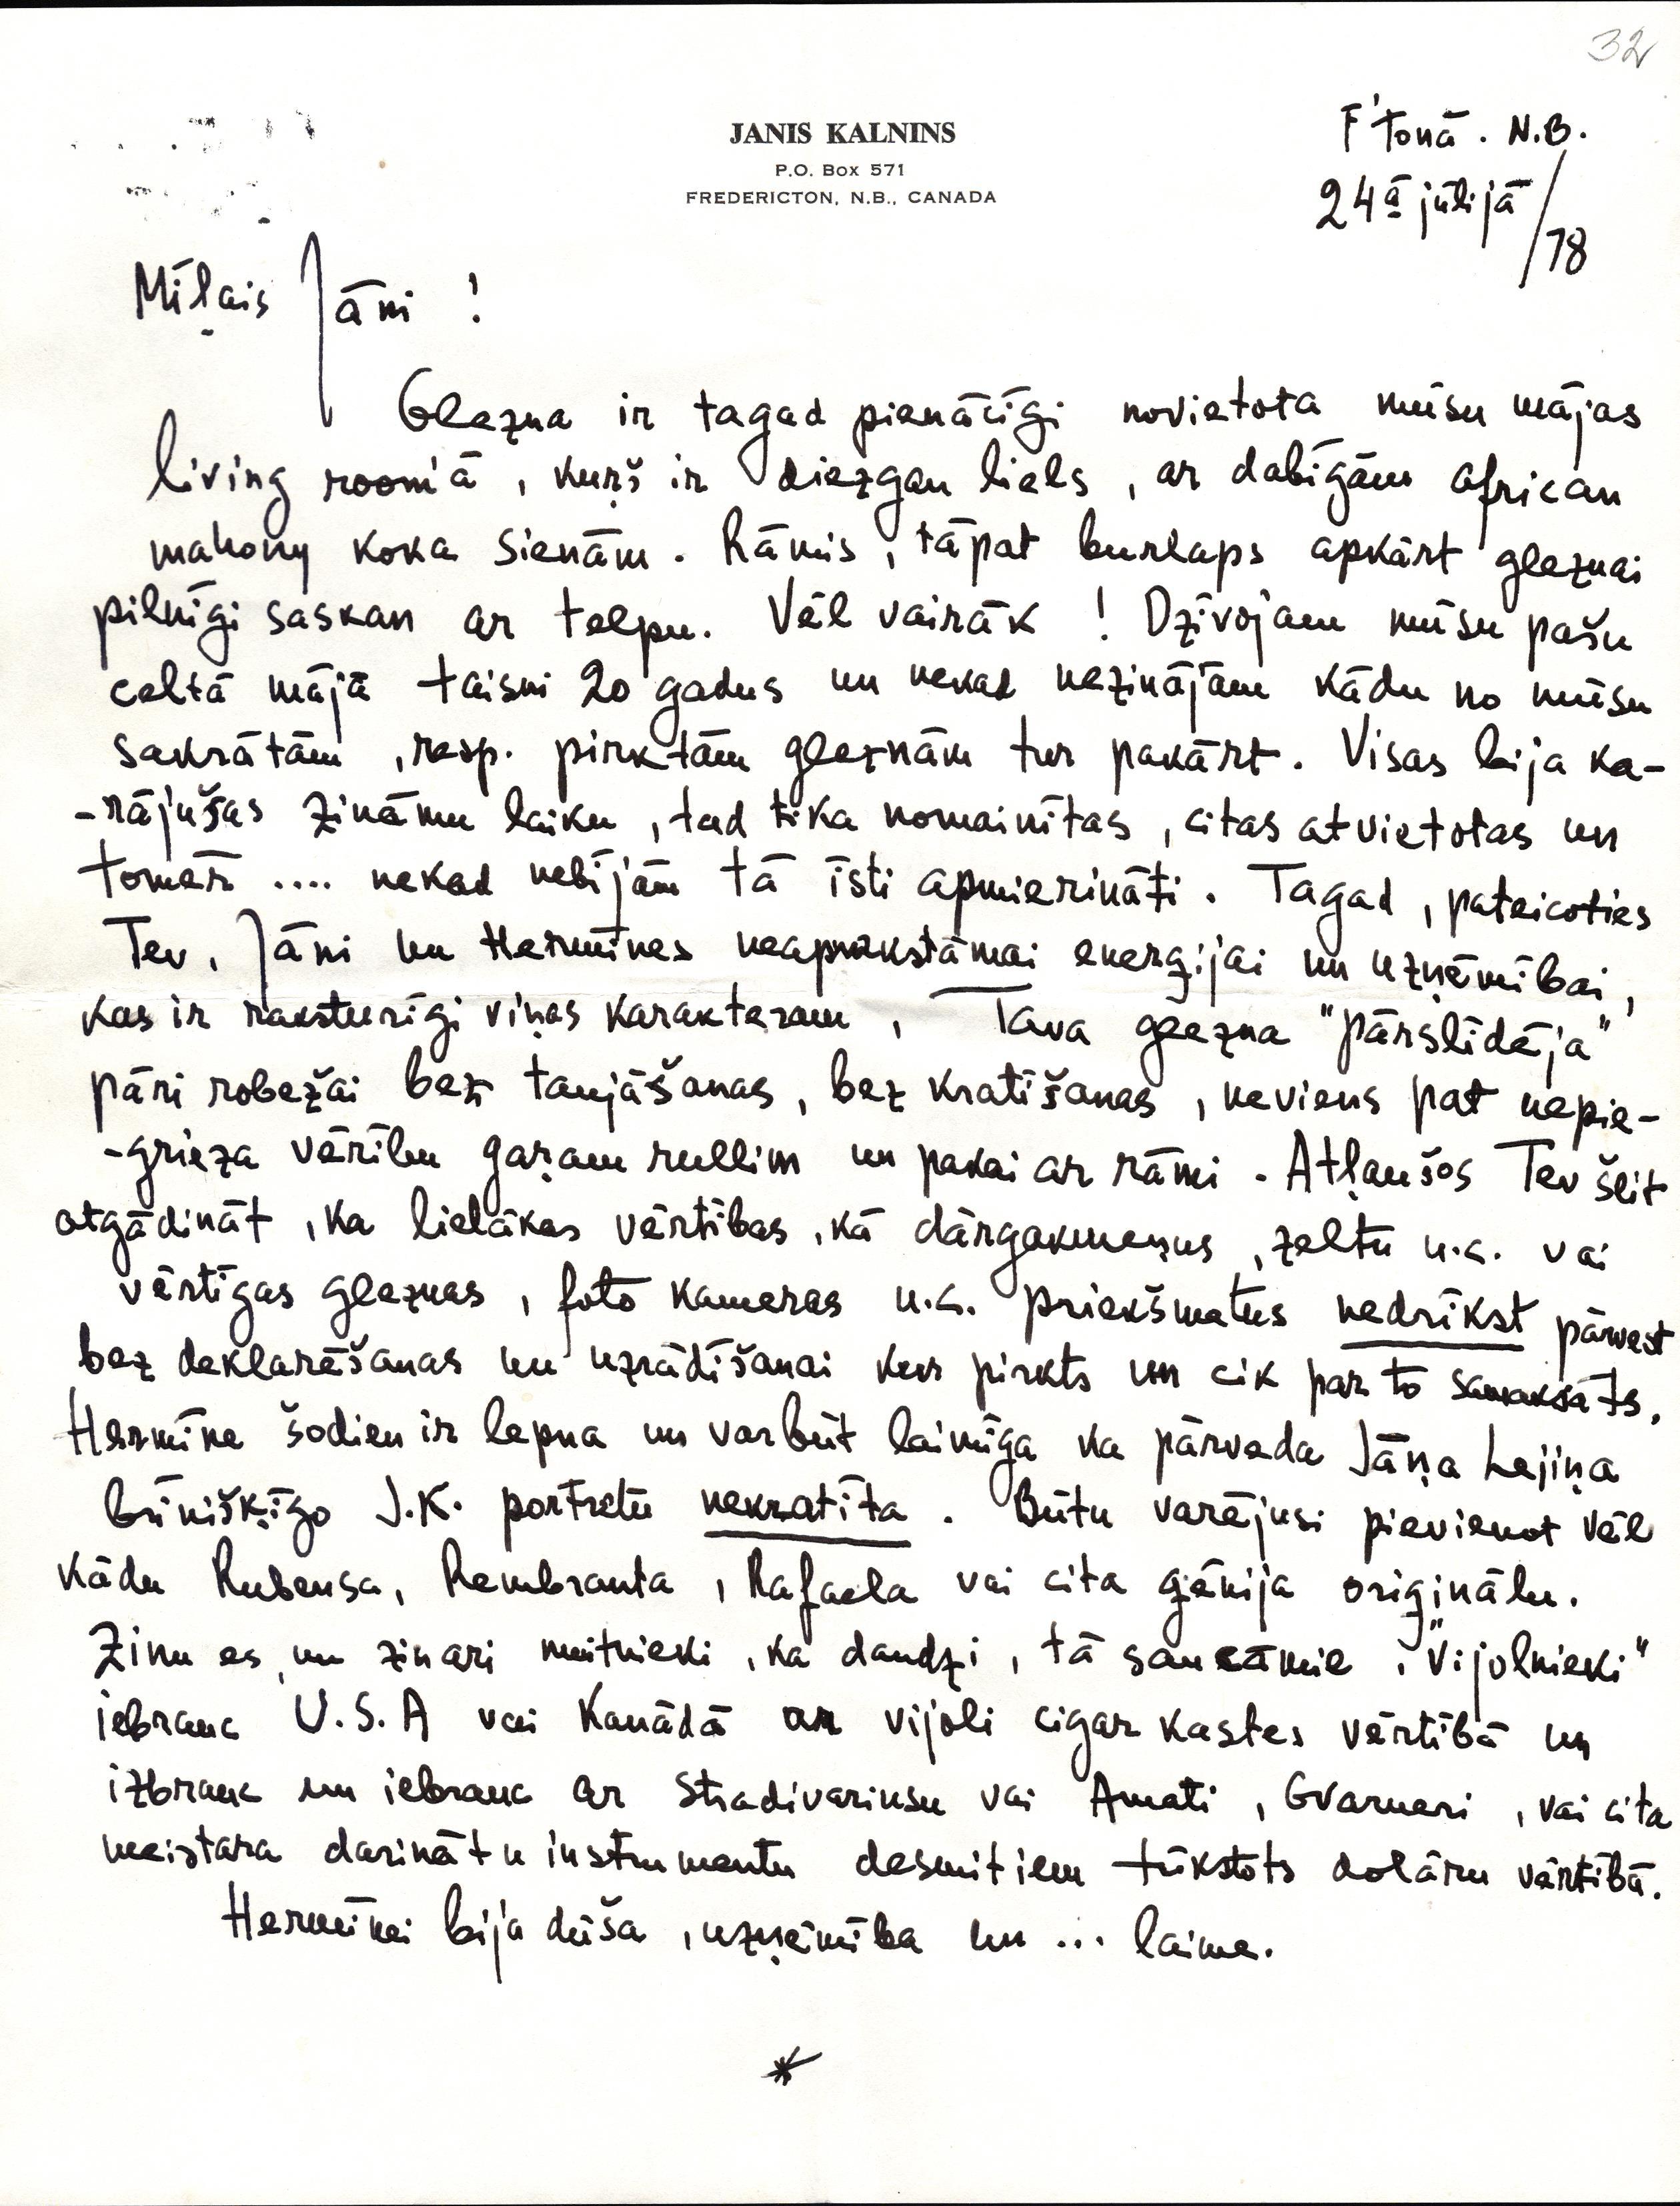 32
JANIS KALNINS
P.O. Box 571
FREDERICTON, N.B., CANADA
F'tonā. N.B.
24ā jūlijā/78
Mīļais Jāni !
Glezna ir tagad pienācīgi novietota mūsu mājas
living room'ā, kuŗš ir diezgan liels, ar dabīgām african
mahony koka sienām. Rāmis, tāpat burlaps apkārt gleznai
pilnīgi saskan ar telpu. Vēl vairāk ! Dzīvojam mūsu pašu
celtā mājā taisni 20 gadus un nekad nezinājām kādu no mūsu
sakrātām, resp. pirktām gleznām tur pakārt. Visas bija ka-
-rājušas zināmu laiku, tad tika nomainītas, citas atvietotas un
tomēr .... nekad nebijām tā īsti apmierināti. Tagad, pateicoties
Tev, Jāni un Hermīnes neaprakstāmai energijai un uzņēmībai,
kas ir raksturīgi viņas karakteram, Tava glezna "pārslīdēja"
pāri robežai bez taujāšanas, bez kratīšanas, neviens pat nepie-
-grieza vērību gaŗam rullim un pakai ar rāmi. Atļaušos Tev šeit
atgādināt, ka lielākas vērtības, kā dārgakmeņus, zeltu u.c. vai
vērtīgas gleznas, foto kameras u.c. priekšmetus nedrīkst pārvest
bez deklarēšanas un uzrādīšanai kur pirkts un cik par to samaksāts.
Hermīne šodien ir lepna un varbūt laimīga ka pārveda Jāņa Lejiņa
brīnišķīgo J.K. portretu nekratīta. Būtu varējusi pievienot vēl
kādu Rubensa, Rembranta, Rafaela vai cita gēnija oriģinālu.
Zinu es, un zin arī muitnieki, ka daudzi, tā saucāmie, "vijolnieki"
iebrauc U.S.A vai Kanādā ar vijoli cigar kastes vērtībā un
izbrauc un iebrauc ar Stradivariusu vai Amati, Gvarneri, vai cita
meistara darinātu instrumentu desmitiem tūkstots dolāru vērtībā.
Hermīnei bija dūša, uzņēmība un ... laime.